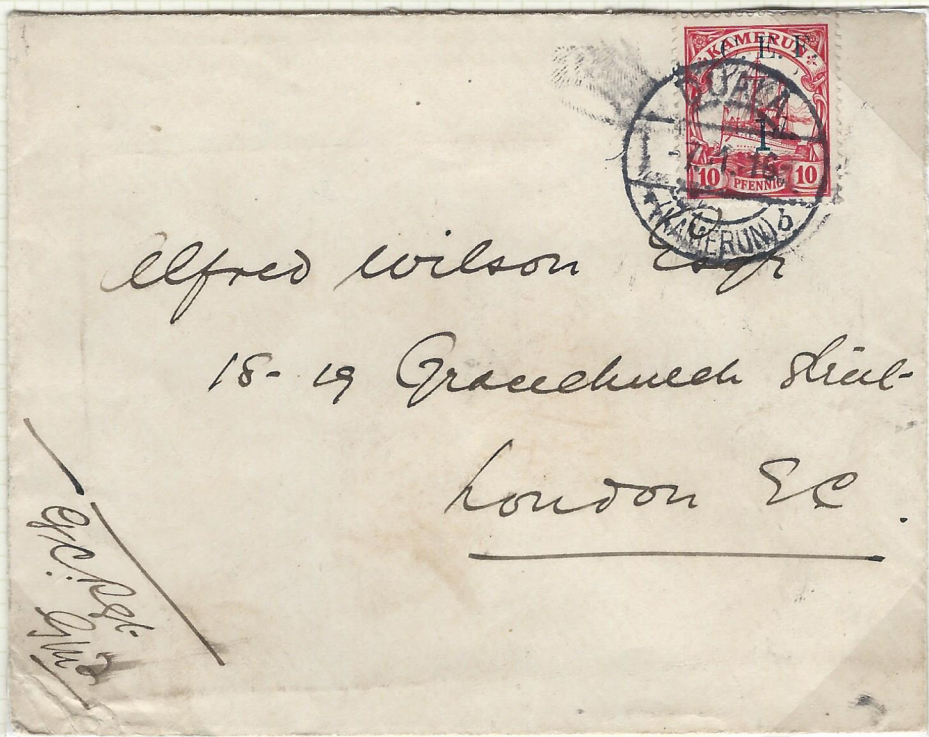 KAMERUN
C. E. F.
1
10 PFENNIG 10
DUALA
-7.1.16
*(KAMERUN) b
Alfred Wilson Esqr
18-19 Gracechurch Street
London EC.
G.C. Rgt.